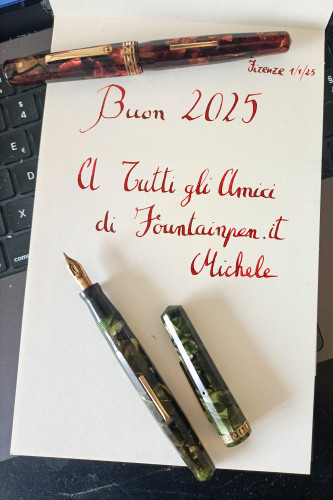 Firenze 1/1/25
Buon 2025
A Tutti gli Amici
di Fountainpen.it
Michele
$
4
E
D
C